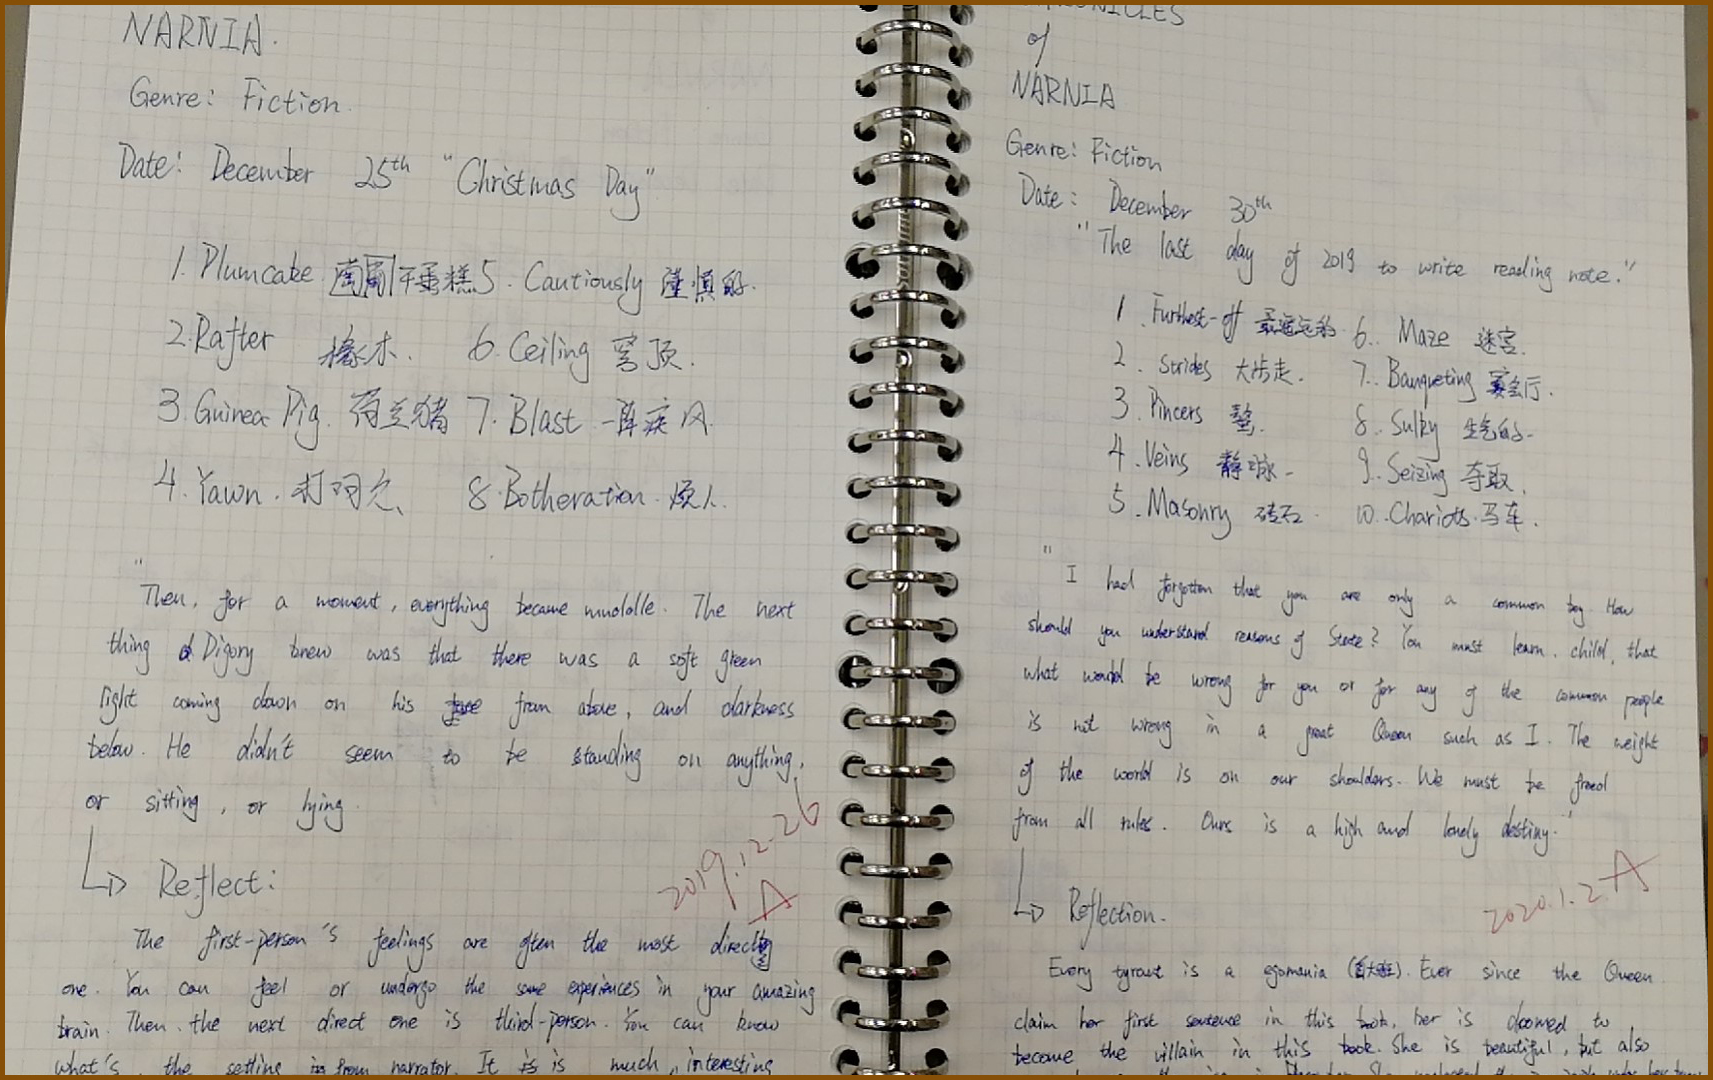 NARNIA.
Genre: Fiction.
Date: December 25th "Christmas Day"
1. Plumcake 葡萄干蛋糕 5. Cautiously 谨慎的.
2. Rafter 橡木. 6. Ceiling 穹顶.
3. Guinea Pig. 荷兰猪 7. Blast 一阵疾风.
4. Yawn. 打呵欠、 8. Botheration. 烦人.
"Then, for a moment, everything became muddle. The next
thing Digory knew was that there was a soft green
light coming down on his from above, and darkness
below. He didn't seem to be standing on anything,
or sitting, or lying.
2019.12.26
A
Reflect:
The first-person's feelings are often the most directly
one. You can feel or undergo the same experiences in your amazing
brain. Then, the next direct one is third-person. You can know
what's, the setting from narrator. It is much, interesting
CHRONICLES
of
NARNIA
Genre: Fiction
Date: December 30th
"The last day of 2019 to write reading note."
1. Furthest-off 6. Maze 迷宫.
2. Strides 大步走. 7. Banqueting 宴会厅.
3. Pincers 螯. 8. Sulky 生气的.
4. Veins 静脉. 9. Seizing 夺取.
5. Masonry 砖石. 10. Chariots. 马车.
"I had forgotten that you are only a common boy. How
should you understand reasons of State? You must learn, child, that
what would be wrong for you or for any of the common people
is not wrong in a great Queen such as I. The weight
of the world is on our shoulders. We must be freed
from all rules. Ours is a high and lonely destiny."
2020.1.2 A
Reflection.
Every tyrant is a egomania (自大狂). Ever since the Queen
claim her first sentence in this book, her is doomed to
become the villain in this book. She is beautiful, but also